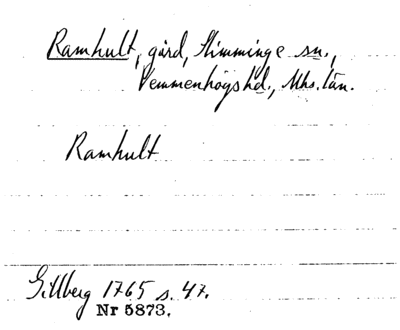 Ramhult, gård, Slimminge sn.,
Vemmenhögs hd., Mhs. län.
Ramhult
Gillberg 1765 s. 47.
Nr 5873.